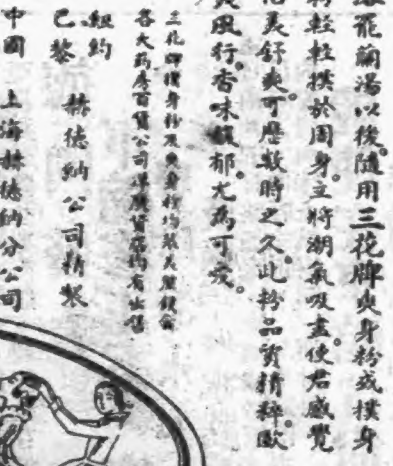 浴罷蘭湯以後。隨用三花牌爽身粉或撲身
粉輕輕撲於周身。立將潮氣吸盡。使君感覺
美舒爽。可歷數時之久。此粉品質精粹。歐
美風行。香味馥郁。尤爲可愛。
三花牌撲身粉及爽身粉均裝美麗鐵
各大藥房百貨公司洋廣貨店均有出售
紐約
巴黎 赫德納公司精製
中國 上海赫德納分公司